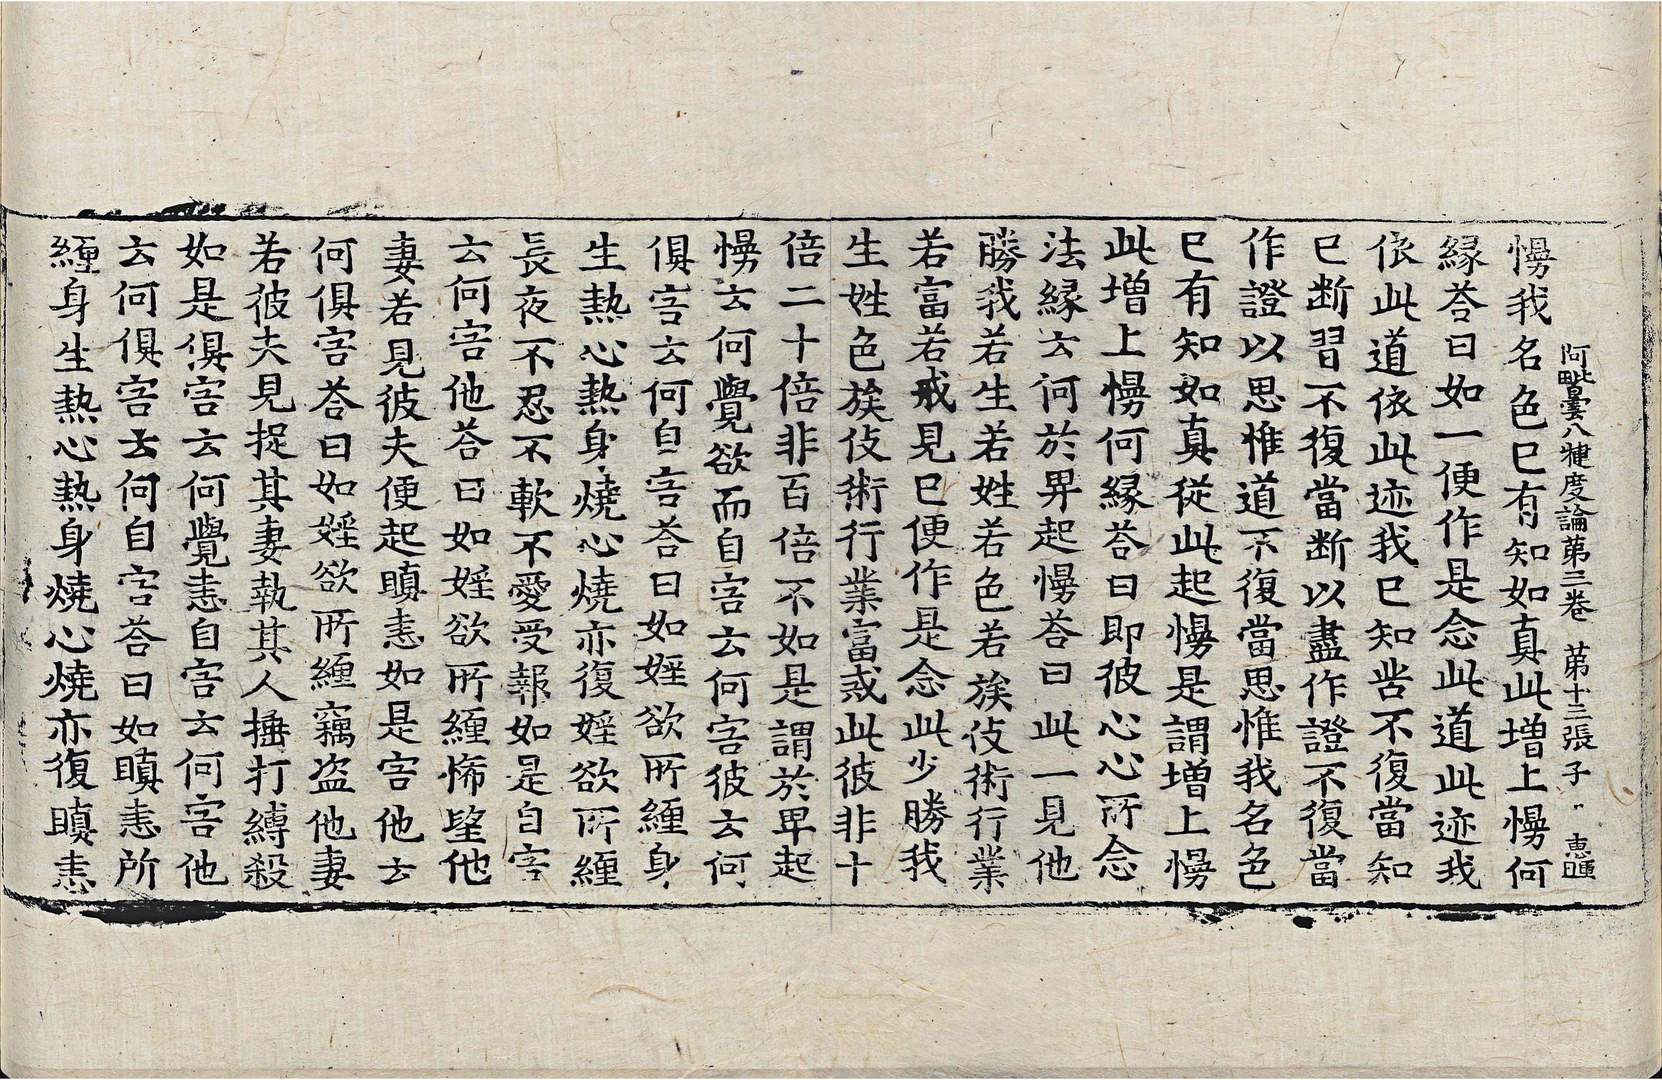 阿毗曇八犍度論第三卷 第十三張 子 惠暉
慢我名色已有知如真此增上慢何
緣荅曰如一便作是念此道此迹我
依此道依此迹我已知苦不復當知
已断習不復當断以盡作證不復當
作證以思惟道不復當思惟我名色
已有知如真從此起慢是謂增上慢
此增上慢何緣荅曰即彼心心所念
法緣云何於卑起慢荅曰此一見他
勝我若生若姓若色若族伎術行業
若富若戒見已便作是念此少勝我
生姓色族伎術行業富戒此彼非十
倍二十倍非百倍不如是謂於卑起
慢云何覺欲而自害云何害彼云何
俱害云何自害荅曰如婬欲所纏身
生熱心熱身燒心燒亦復婬欲所纏
長夜不忍不軟不愛受報如是自害
云何害他荅曰如婬欲所纏悕望他
妻若見彼夫便起瞋恚如是害他云
何俱害荅曰如婬欲所纏竊盗他妻
若彼夫見捉其妻執其人捶打縛殺
如是俱害云何覺恚自害云何害他
云何俱害云何自害荅曰如瞋恚所
纏身生熱心熱身燒心燒亦復瞋恚